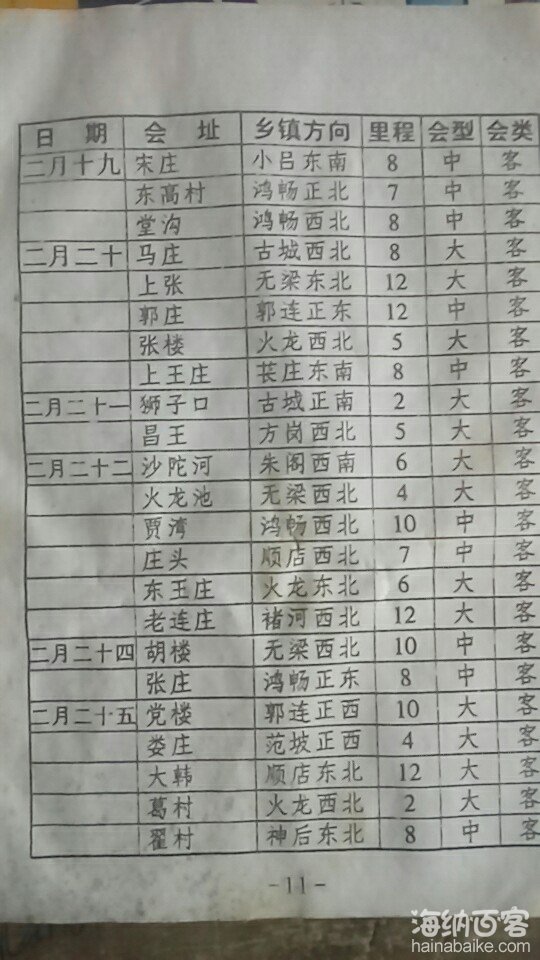 日期 会址 乡镇方向 里程 会型 会类
二月十九 宋庄 小吕东南 8 中 客
东高村 鸿畅正北 7 中 客
堂沟 鸿畅西北 8 中 客
二月二十 马庄 古城西北 8 大 客
上张 无梁东北 12 大 客
郭庄 郭连正东 12 中 客
张楼 火龙西北 5 大 客
上王庄 苌庄东南 8 中 客
二月二十一 狮子口 古城正南 2 大 客
昌王 方岗西北 5 大 客
二月二十二 沙陀河 朱阁西南 6 大 客
火龙池 无梁西北 4 大 客
贾湾 鸿畅西北 10 中 客
庄头 顺店西北 7 中 客
东王庄 火龙东北 6 大 客
老连庄 褚河西北 12 大 客
二月二十四 胡楼 无梁西北 10 中 客
张庄 鸿畅正东 8 中 客
二月二十五 党楼 郭连正西 10 大 客
娄庄 范坡正西 4 大 客
大韩 顺店东北 12 大 客
葛村 火龙西北 2 大 客
翟村 神后东北 8 中 客
-11-
海纳百客
hainabaike.com